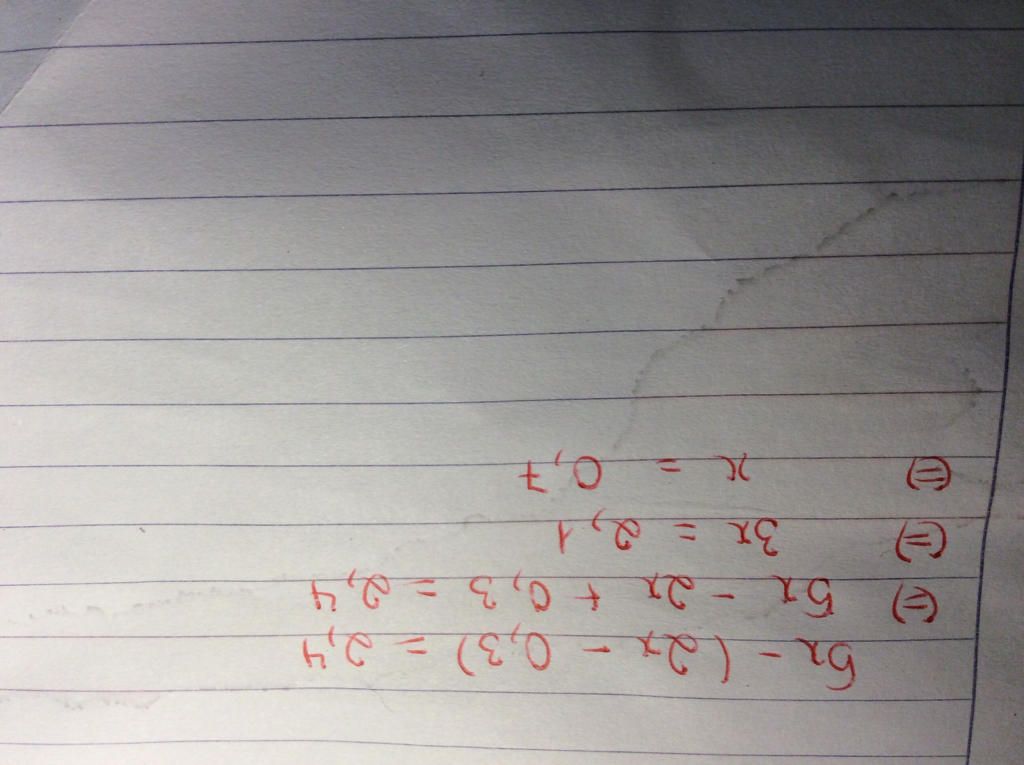 5x - (2x - 0,3) = 2,4
(=) 5x - 2x + 0,3 = 2,4
(=) 3x = 2,1
(=) x = 0,7